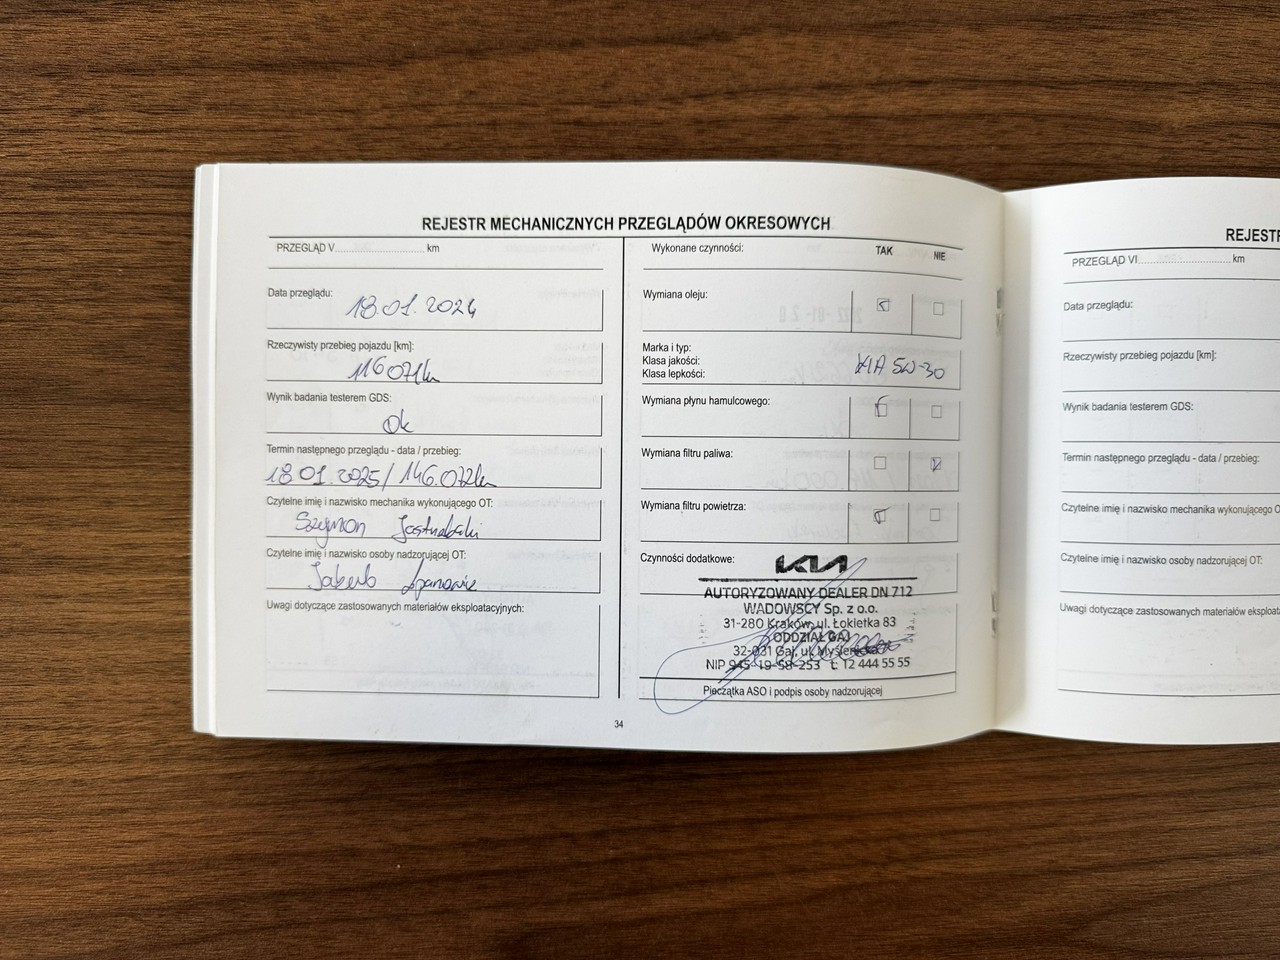 REJESTR MECHANICZNYCH PRZEGLĄDÓW OKRESOWYCH
PRZEGLĄD V.............................. km
Data przeglądu:
18.01.2024
Rzeczywisty przebieg pojazdu [km]:
116071km
Wynik badania testerem GDS:
Ok
Termin następnego przeglądu - data / przebieg:
18.01.2025/146.072km
Czytelne imię i nazwisko mechanika wykonującego OT:
Szymon
Czytelne imię i nazwisko osoby nadzorującej OT:
Jakub
Uwagi dotyczące zastosowanych materiałów eksploatacyjnych:
Wykonane czynności: TAK NIE
Wymiana oleju:
Marka i typ:
Klasa jakości:
Klasa lepkości:
KIA 5W-30
Wymiana płynu hamulcowego:
Wymiana filtru paliwa:
Wymiana filtru powietrza:
Czynności dodatkowe:
KIA
AUTORYZOWANY DEALER DN 712
WADOWSCY Sp. z o.o.
31-280 Kraków, ul. Łokietka 83
ODDZIAŁ GAJ
32-031 Gaj, ul. Myślenicka
NIP 945-19-58-253 t: 12 444 55 55
Pieczątka ASO i podpis osoby nadzorującej
34
REJEST
PRZEGLĄD VI.............................. km
Data przeglądu:
Rzeczywisty przebieg pojazdu [km]:
Wynik badania testerem GDS:
Termin następnego przeglądu - data / przebieg:
Czytelne imię i nazwisko mechanika wykonującego O
Czytelne imię i nazwisko osoby nadzorującej OT:
Uwagi dotyczące zastosowanych materiałów eksploata